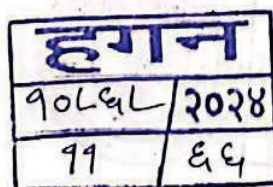 हगन
१०८६८ २०२४
११ ६६